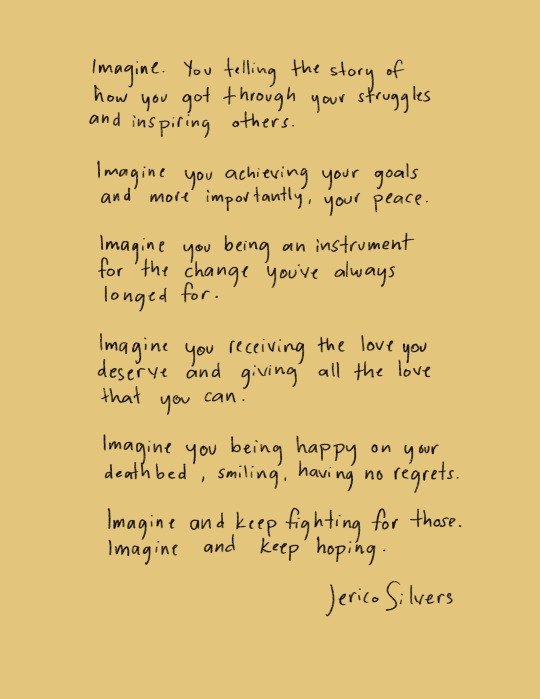 Imagine. You telling the story of
how you got through your struggles
and inspiring others.
Imagine you achieving your goals
and more importantly, your peace.
Imagine you being an instrument
for the change you've always
longed for.
Imagine you receiving the love you
deserve and giving all the love
that you can.
Imagine you being happy on your
deathbed, smiling, having no regrets.
Imagine and keep fighting for those.
Imagine and keep hoping.
Jerico Silvers